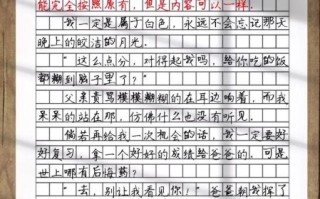 能完全按照原有，但是内容可以一样。
我一定是属于白色，永远不会忘记那天
晚上的皎洁的月光。
“这么点分，对得起我吗，给你吃的饭
都糊到脑子里了？”
父亲责骂模模糊糊的在耳边响着，而我
呆呆的站在那，仿佛什么也没有听见。
倘若再给我一次机会的话，我一定要好
好复习，拿一个好好的成绩给爸爸的。可是
世上哪有后悔药？
“去，别让我看见你！”爸爸朝我挥了